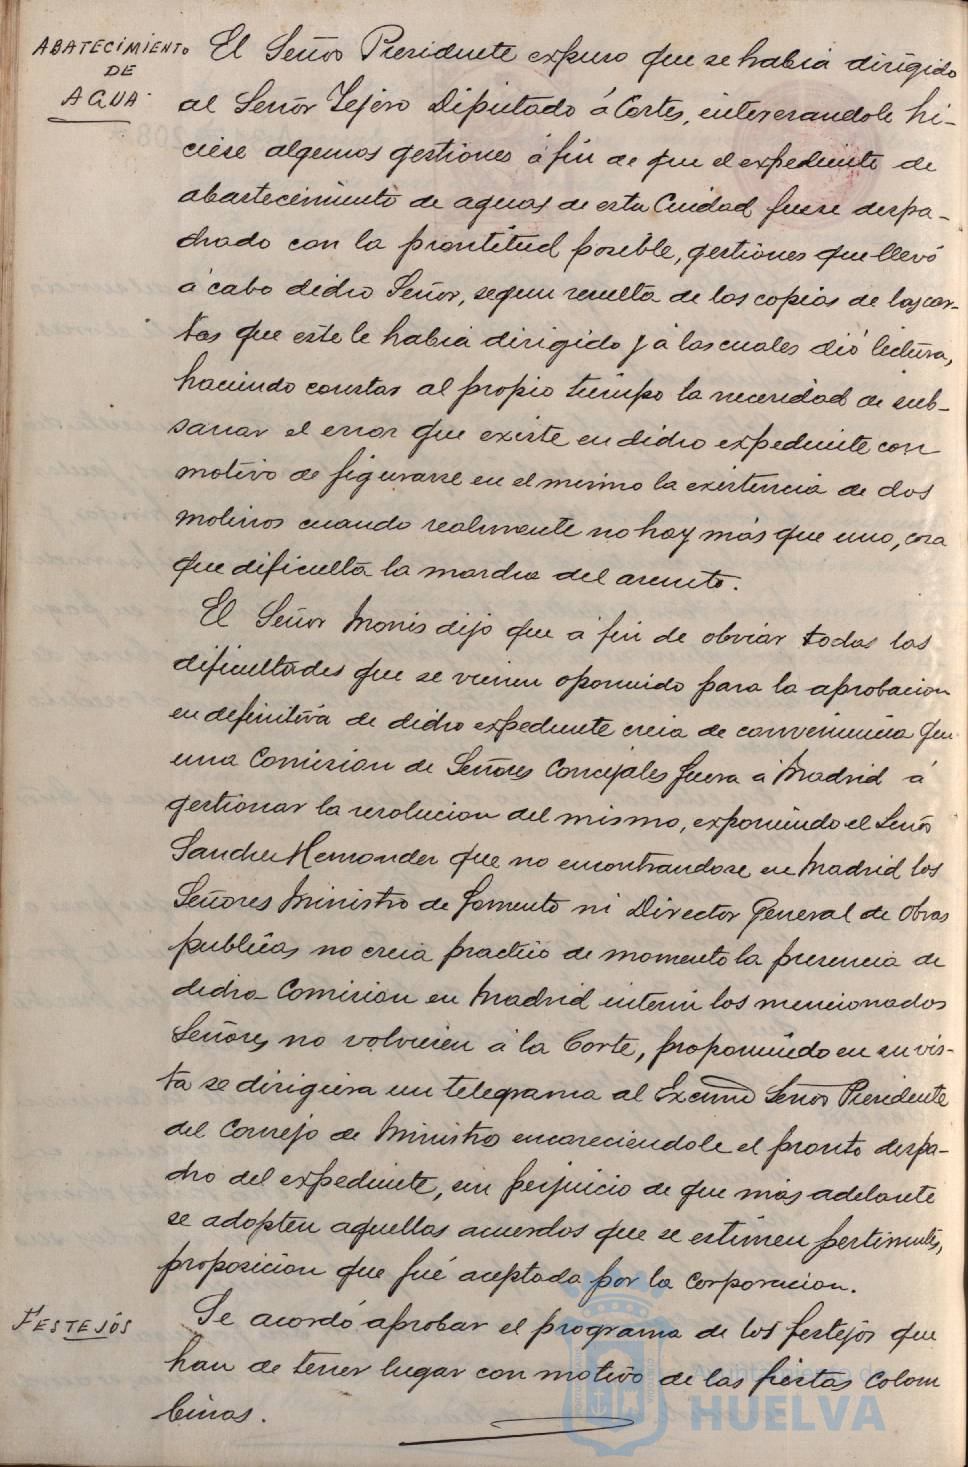 ABATECIMIENTO
DE
AGUA.
El Señor Presidente expuso que se habia dirigido
al Señor Tejero Diputado á Cortes, interesandole hi-
ciese algunas gestiones á fin de que el expediente de
abastecimiento de aguas de esta Ciudad fuese despa-
chado con la prontitud posible, gestiones que llevó
á cabo dicho Señor, segun resulta de las copias de las car-
tas que este le habia dirigido y á las cuales dió lectura,
haciendo constar al propio tiempo la necesidad de sub-
sanar el error que existe en dicho expediente con
motivo de figurarse en el mismo la existencia de dos
molinos cuando realmente no hay más que uno, cosa
que dificulta la marcha del asunto.
El Señor Monis dijo que á fin de obviar todas las
dificultades que se vienen oponiendo para la aprobacion
en definitiva de dicho expediente creia de conveniencia que
una Comision de Señores Concejales fuera á Madrid á
gestionar la resolucion del mismo, exponiendo el Señor
Sanchez Hernandez que no encontrandose en Madrid los
Señores Ministro de Fomento ni Director General de Obras
publicas no creia practico de momento la presencia de
dicha Comision en Madrid interin los mencionados
Señores no volviesen á la Corte, proponiendo en su vis-
ta se dirigiera un telegrama al Excmo Señor Presidente
del Consejo de Ministro encareciendole el pronto despa-
cho del expediente, sin perjuicio de que más adelante
se adopten aquellos acuerdos que se estimen pertinentes,
proposicion que fué aceptada por la Corporacion.
FESTEJOS
Se acordó aprobar el programa de los festejos que
han de tener lugar con motivo de las fiestas Colom
binas.
Ayuntamiento de
HUELVA